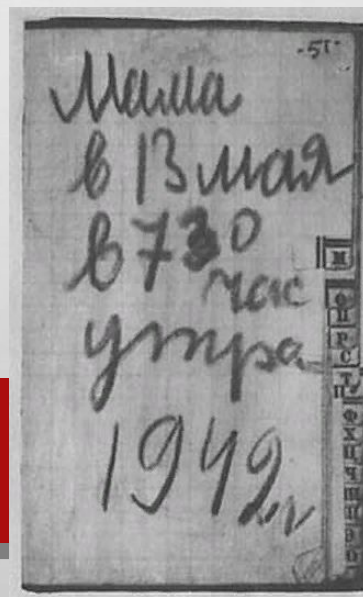 -51-
Мама
в 13 мая
в 730
час
утра
1942 г
М
О
П
Р
С
Т